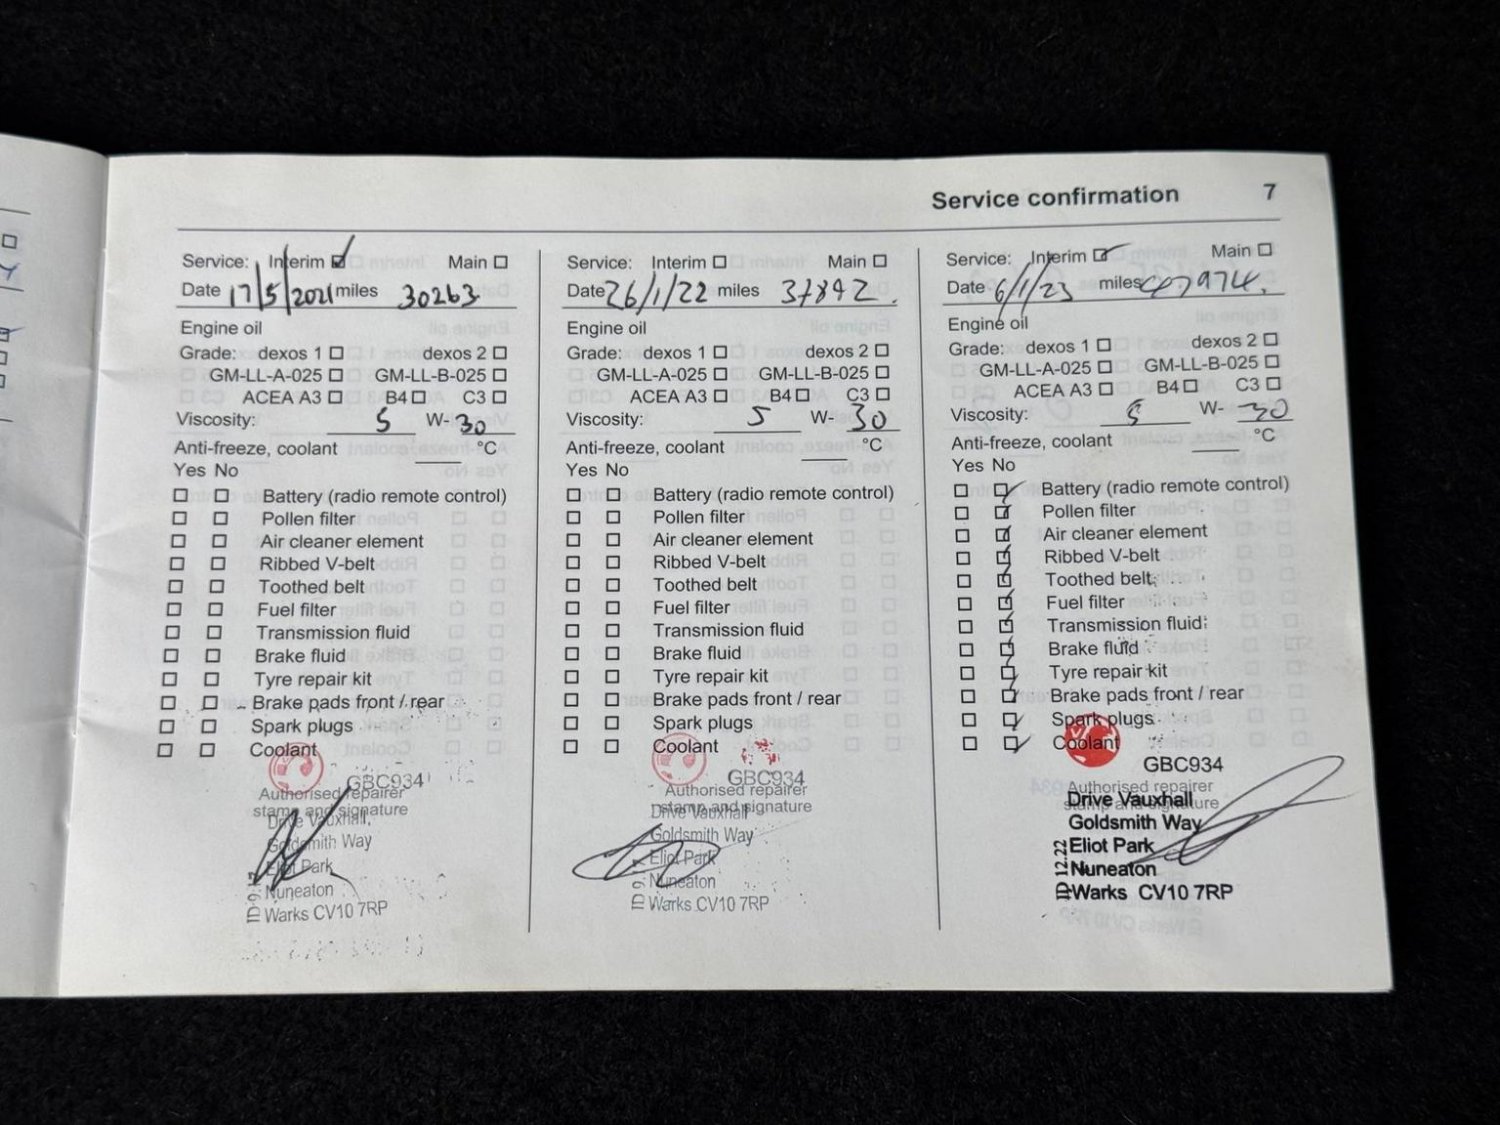 Service confirmation 7
Service: Interim Main
Date 17/5/2021 miles 30263
Engine oil
Grade: dexos 1 dexos 2
GM-LL-A-025 GM-LL-B-025
ACEA A3 B4 C3
Viscosity: 5 W-30
Anti-freeze, coolant °C
Yes No
Battery (radio remote control)
Pollen filter
Air cleaner element
Ribbed V-belt
Toothed belt
Fuel filter
Transmission fluid
Brake fluid
Tyre repair kit
Brake pads front / rear
Spark plugs
Coolant
GBC934
Authorised repairer
stamp and signature
Drive Vauxhall,
Goldsmith Way
Eliot Park
Nuneaton
Warks CV10 7RP
Service: Interim Main
Date 26/1/22 miles 37892
Engine oil
Grade: dexos 1 dexos 2
GM-LL-A-025 GM-LL-B-025
ACEA A3 B4 C3
Viscosity: 5 W-30
Anti-freeze, coolant °C
Yes No
Battery (radio remote control)
Pollen filter
Air cleaner element
Ribbed V-belt
Toothed belt
Fuel filter
Transmission fluid
Brake fluid
Tyre repair kit
Brake pads front / rear
Spark plugs
Coolant
GBC934
Authorised repairer
stamp and signature
Drive Vauxhall
Goldsmith Way
Eliot Park
Nuneaton
Warks CV10 7RP
Service: Interim Main
Date 6/1/23 miles
Engine oil
Grade: dexos 1 dexos 2
GM-LL-A-025 GM-LL-B-025
ACEA A3 B4 C3
Viscosity: 5 W-30
Anti-freeze, coolant °C
Yes No
Battery (radio remote control)
Pollen filter
Air cleaner element
Ribbed V-belt
Toothed belt
Fuel filter
Transmission fluid
Brake fluid
Tyre repair kit
Brake pads front / rear
Spark plugs
Coolant
GBC934
Authorised repairer
stamp and signature
Drive Vauxhall
Goldsmith Way
Eliot Park
Nuneaton
Warks CV10 7RP
12.22